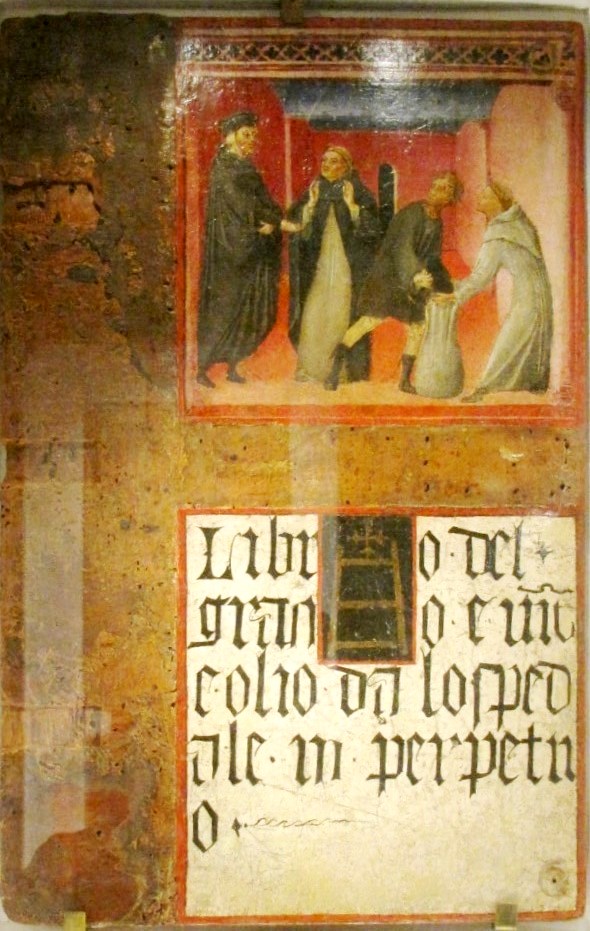 Libro · del
grano e vino
e · olio da lospeda
ale · in · perpetu
o